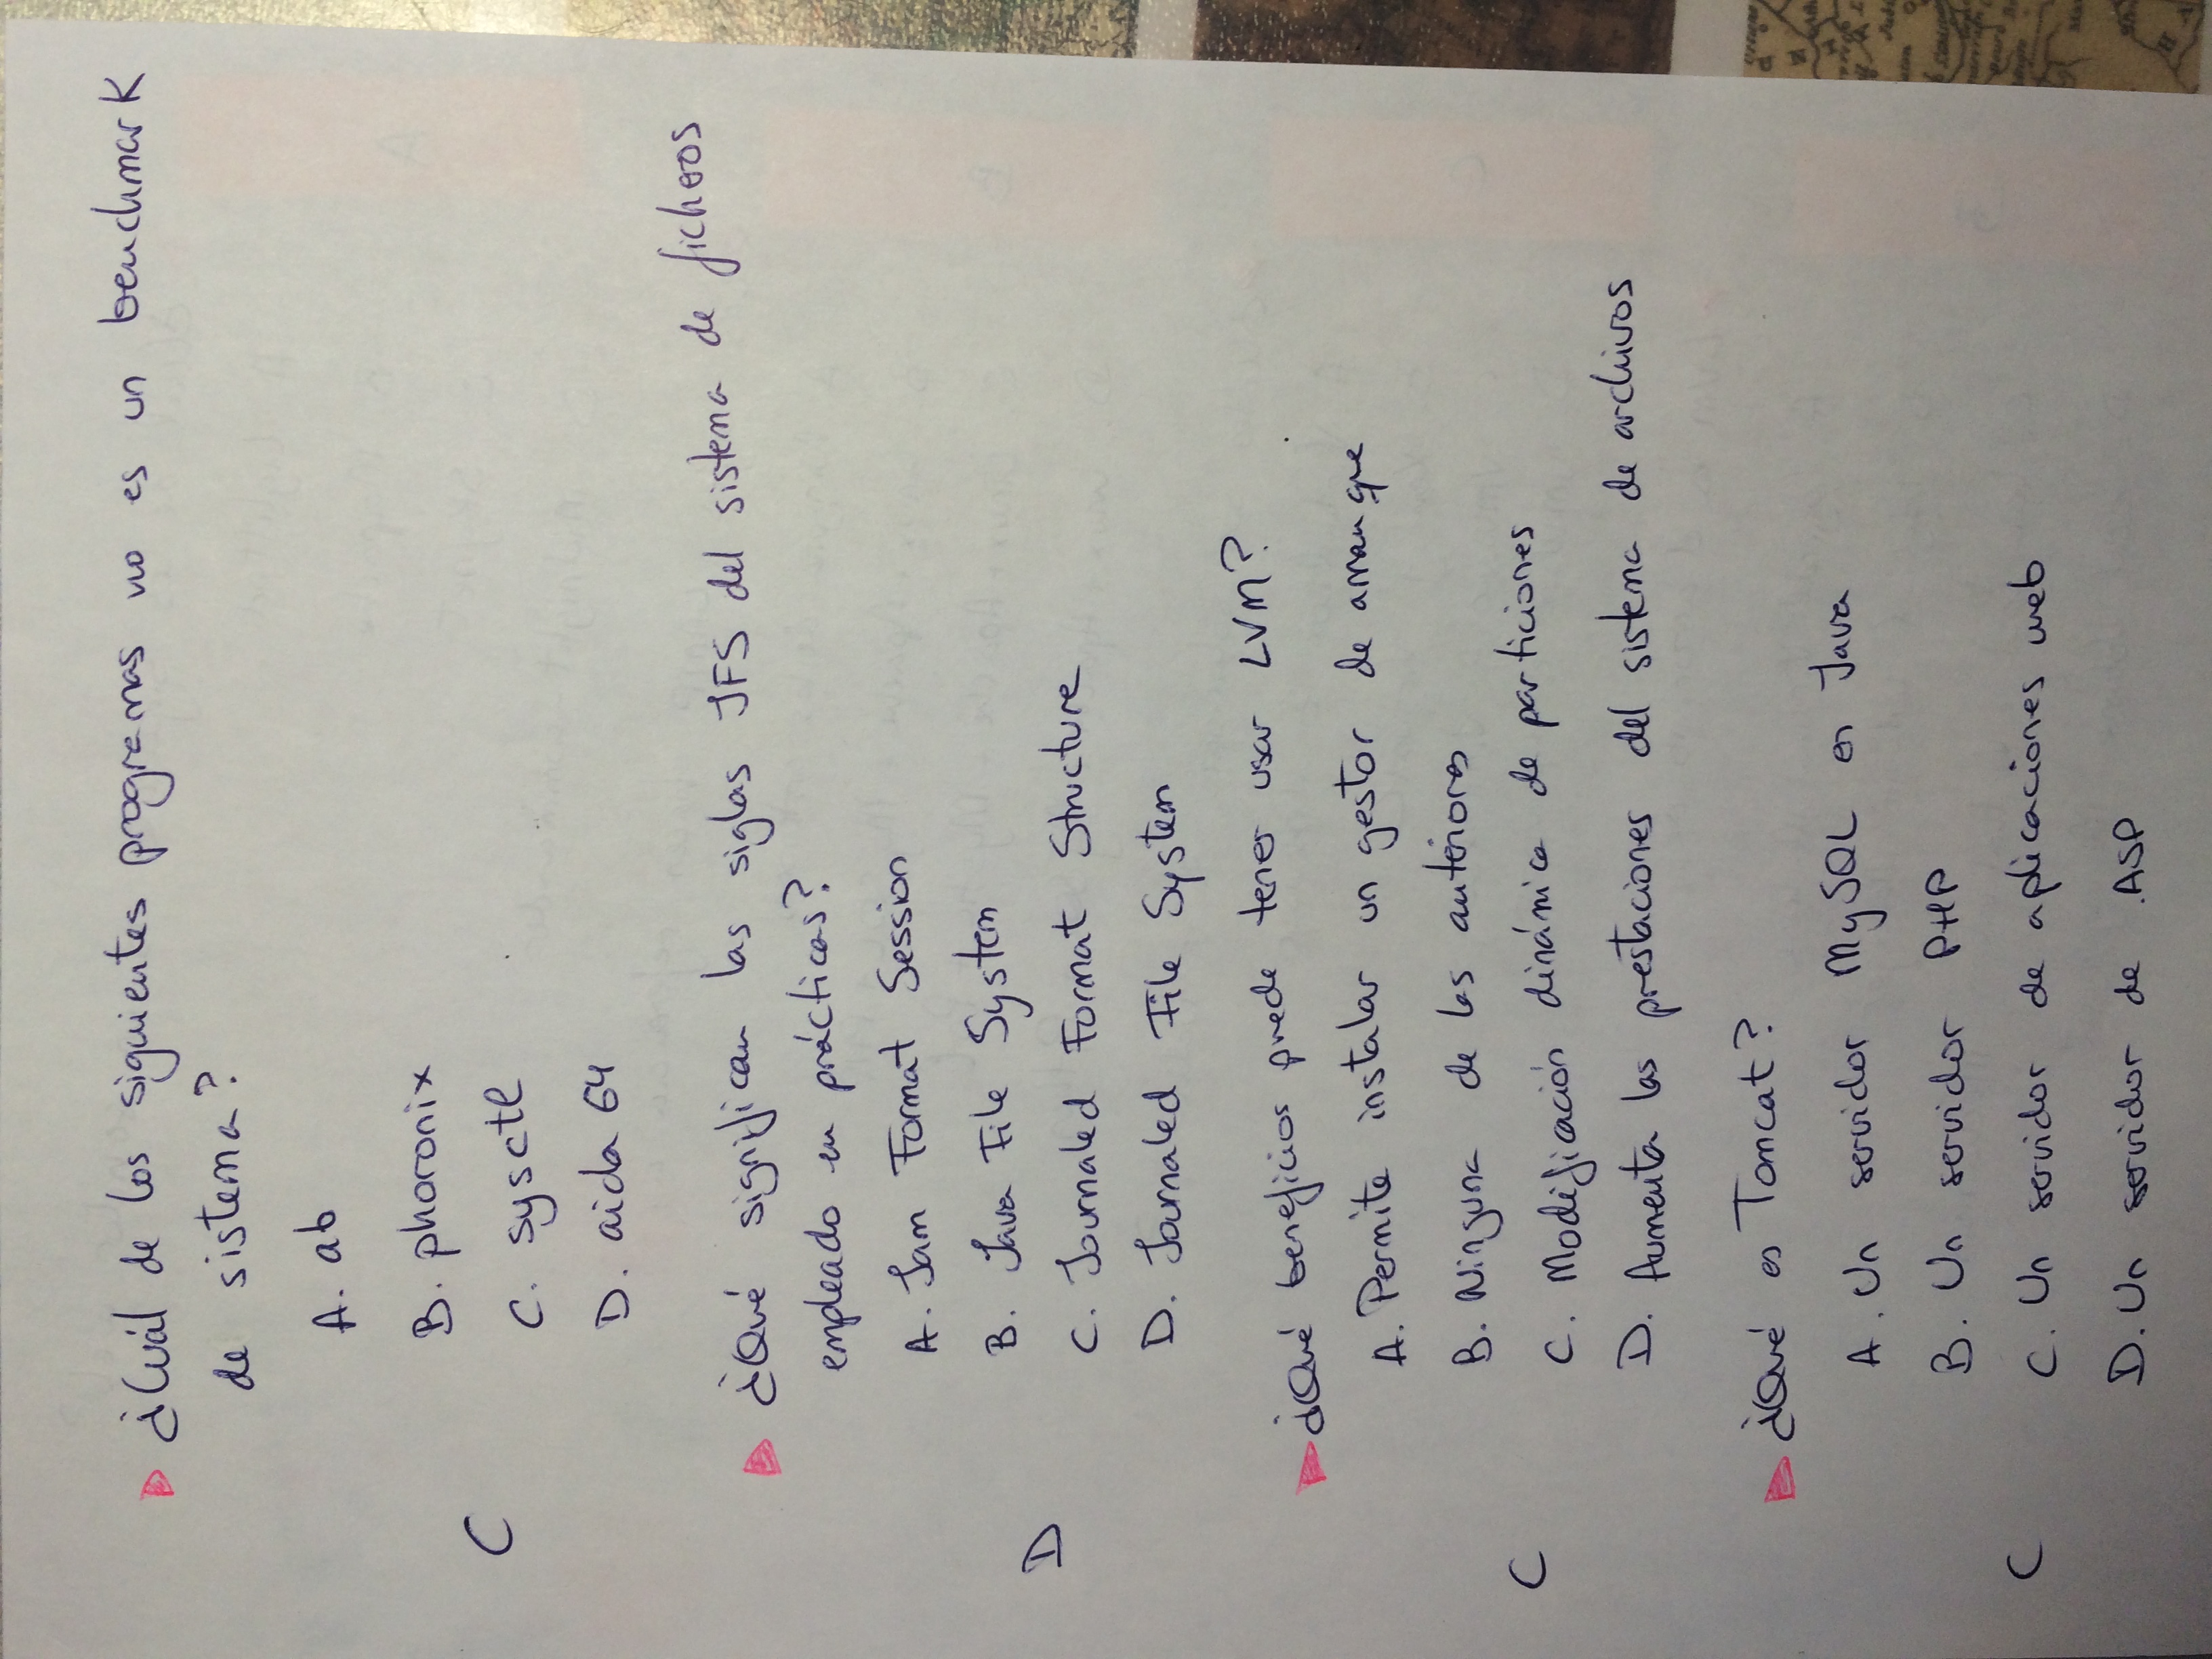 ¿Cuál de los siguientes programas no es un benchmark
de sistema?
A. ab
B. phoronix
C
C. sysctl
D. aida 64
¿Qué significan las siglas JFS del sistema de ficheros
empleado en prácticas?
A. Jam Format Session
B. Java File System
D
C. Journaled Format Structure
D. Journaled File System
¿Qué beneficios puede tener usar LVM?
A. Permite instalar un gestor de arranque
B. Ninguna de las anteriores
C
C. Modificación dinámica de particiones
D. Aumenta las prestaciones del sistema de archivos
¿Qué es Tomcat?
A. Un servidor MySQL en Java
B. Un servidor PHP
C
C. Un servidor de aplicaciones web
D. Un servidor de .ASP